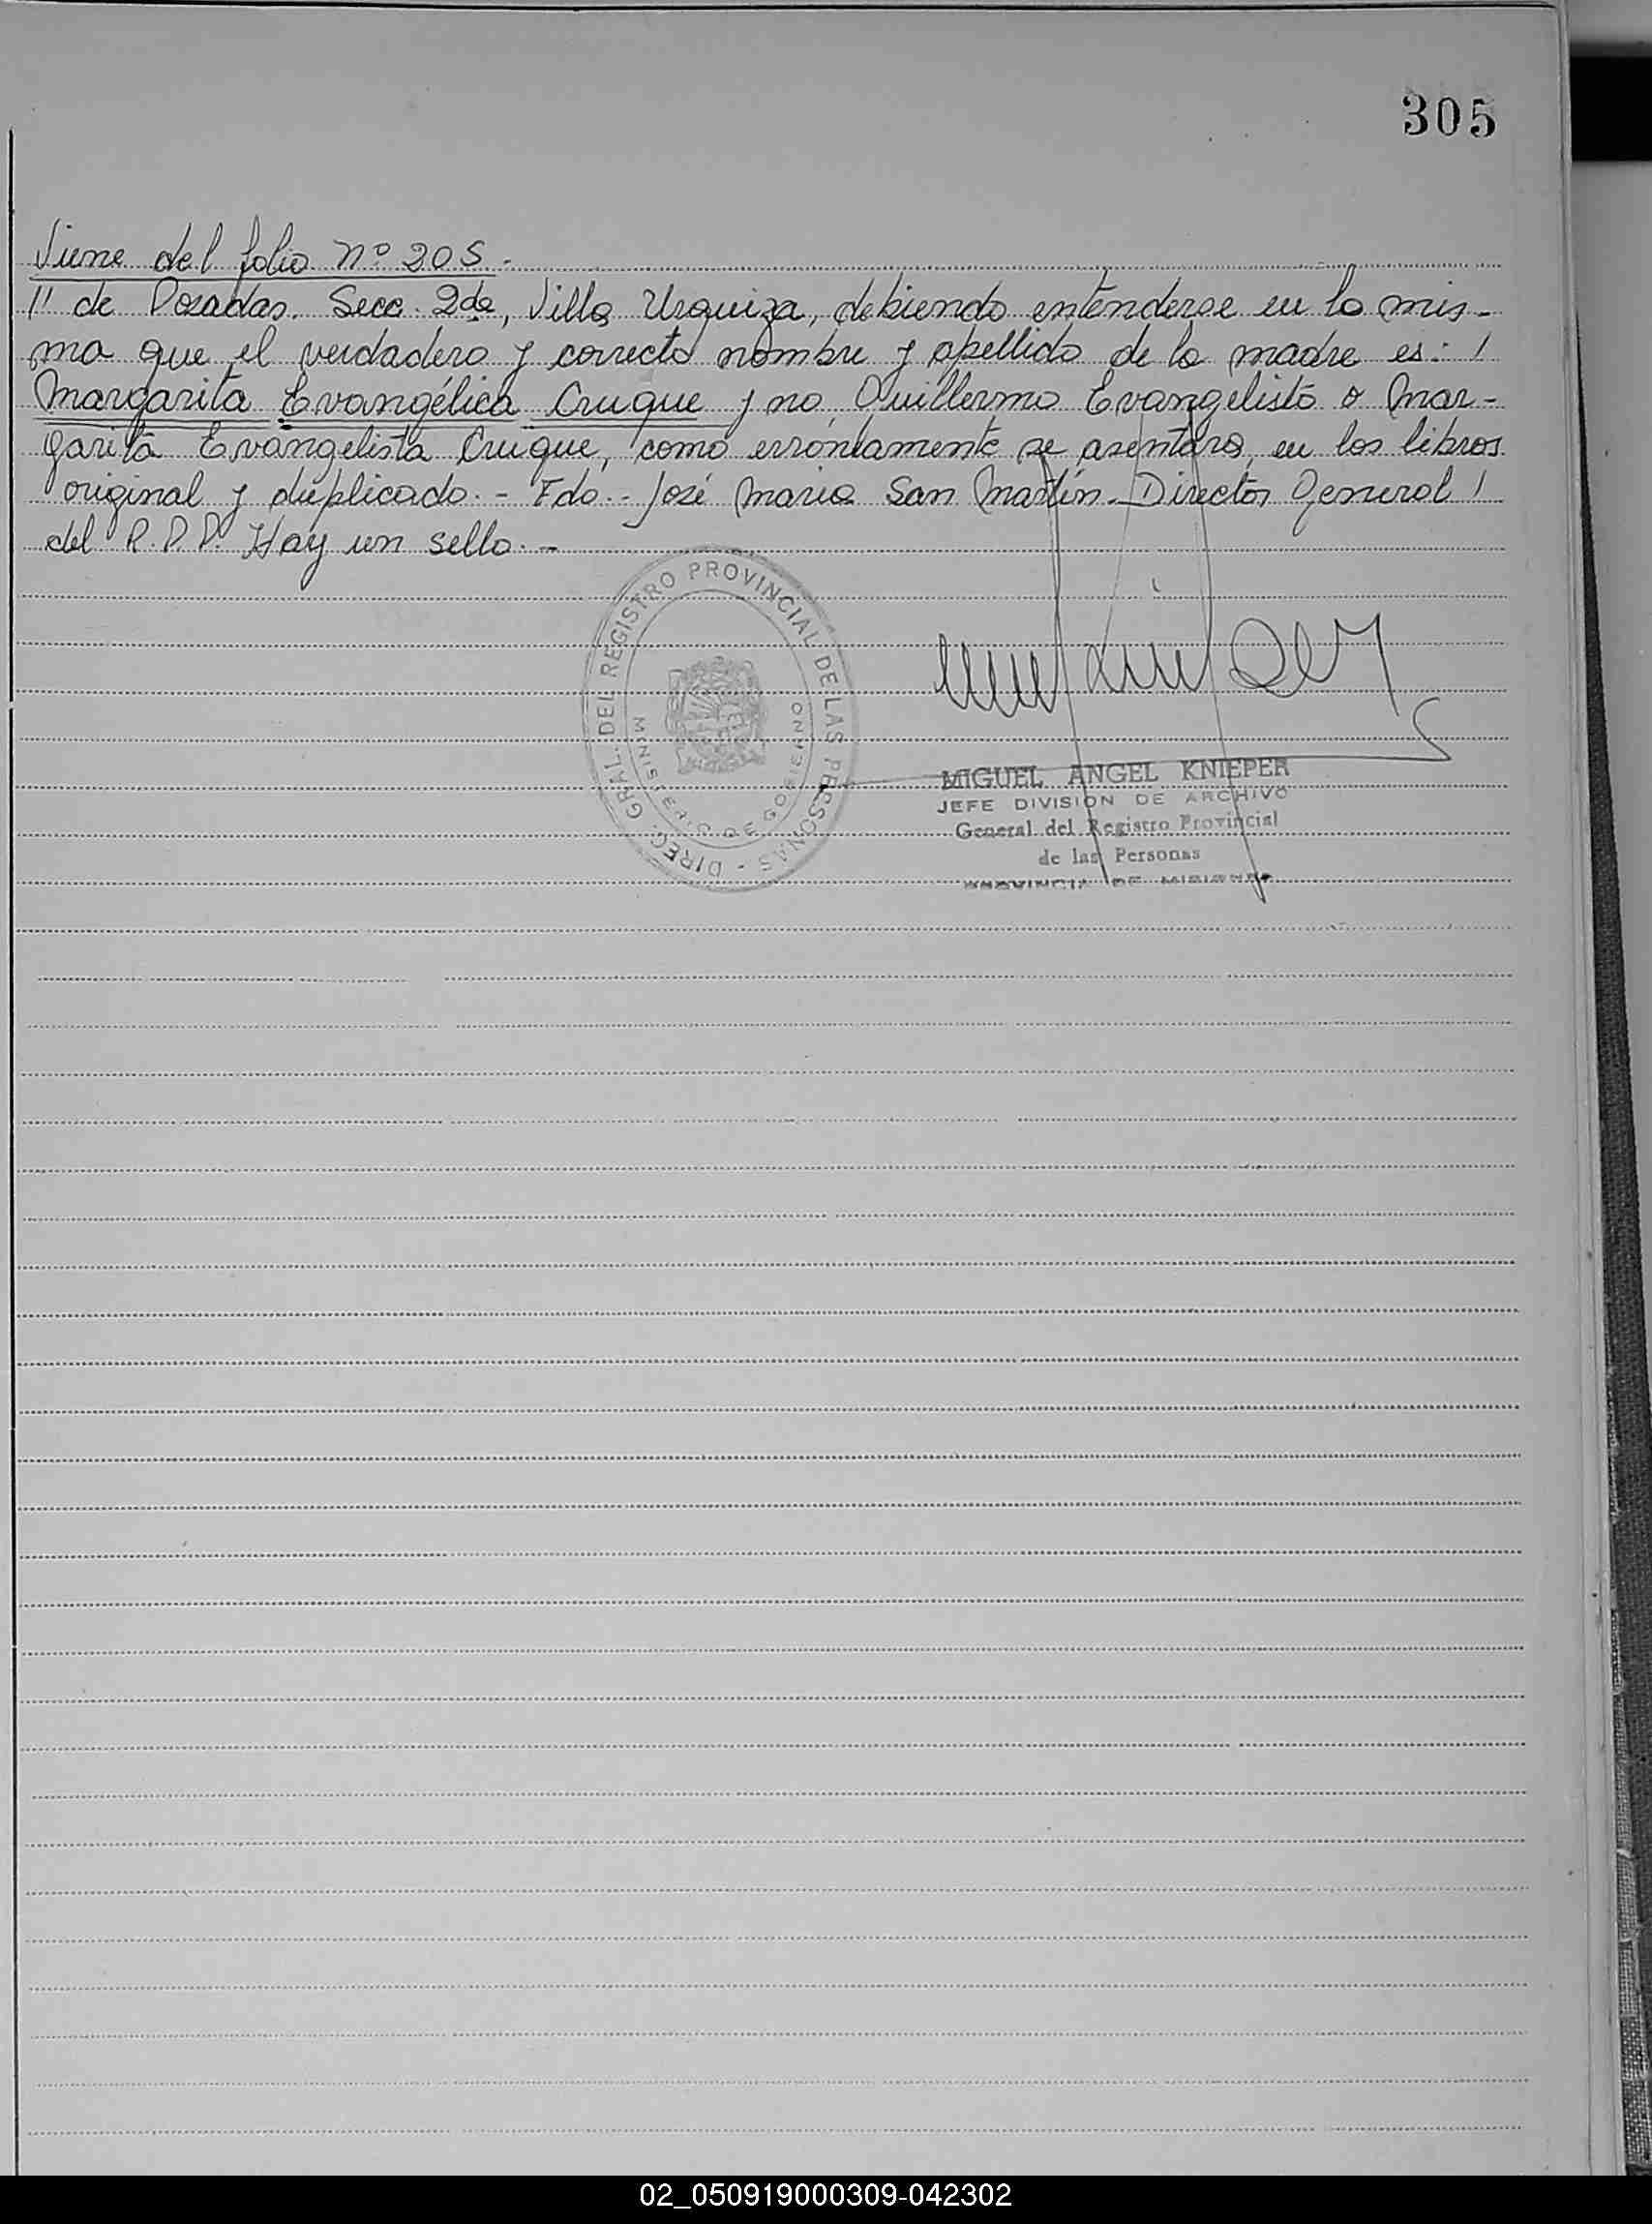 305
Viene del folio nº 205.-
// de Posadas. Secc. 2da, Villa Urquiza, debiendo entenderse en la mis-
ma que el verdadero y correcto nombre y apellido de la madre es: /
Margarita Evangélica Cruque y no Guillerma Evangelista o Mar-
garita Evangelista Cruque, como erróneamente se asentara en los libros
original y duplicado.- Fdo.- José Maria San Martín- Director General /
del R.P.P. Hay un sello.-
DIREC. GRAL. DEL REGISTRO PROVINCIAL DE LAS PERSONAS -
MINISTERIO DE GOBIERNO
MIGUEL ANGEL KNIEPER
JEFE DIVISION DE ARCHIVO
General del Registro Provincial
de las Personas
PROVINCIA DE MISIONES
02_050919000309-042302